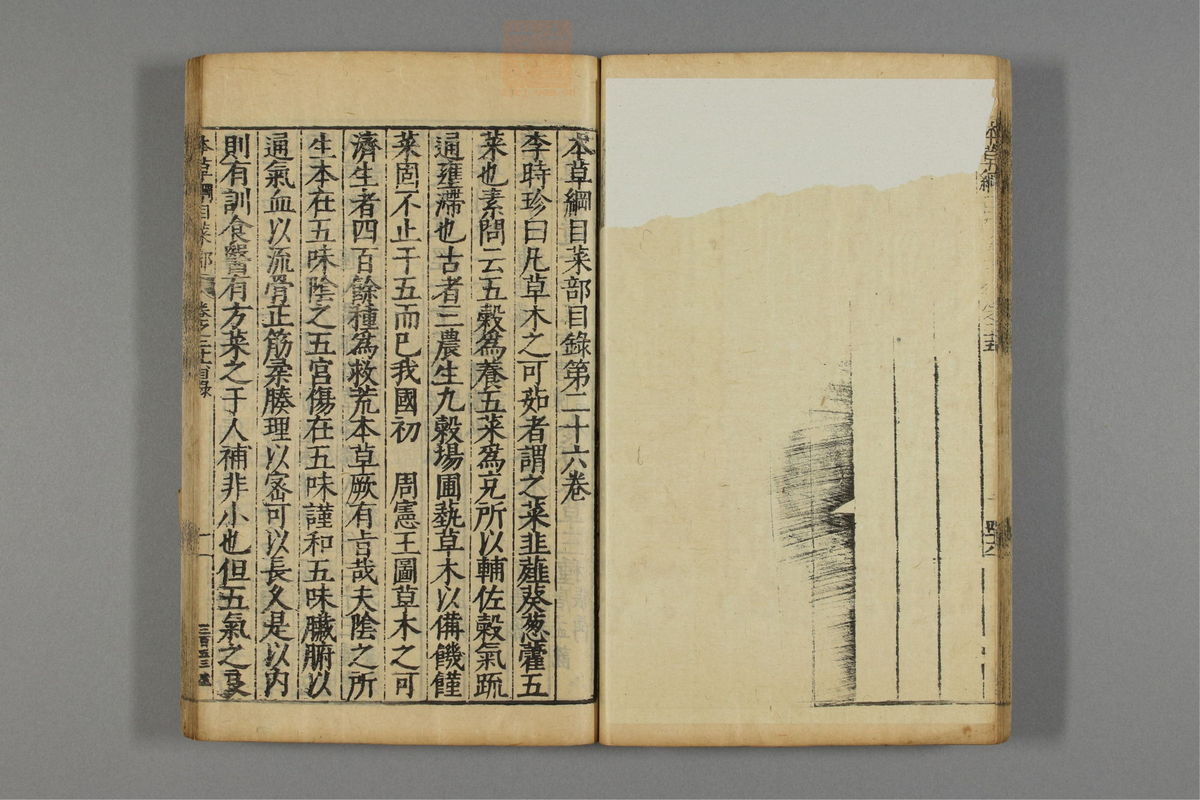 本草綱目菜部目錄第二十六卷
李時珍曰凡草木之可茹者謂之菜韭薤葵葱藿五
菜也素問云五穀爲養五菜爲充所以輔佐穀氣疏
通壅滯也古者三農生九穀場圃蓺草木以備饑饉
菜固不止于五而巳我國初　周憲王圖草木之可
濟生者四百餘種爲救荒本草厥有旨哉夫陰之所
生本在五味陰之五宮傷在五味謹和五味臟腑以
通氣血以流骨正筋柔腠理以密可以長久是以內
則有訓食醫有方菜之于人補非小也但五氣之良
本草綱目菜部